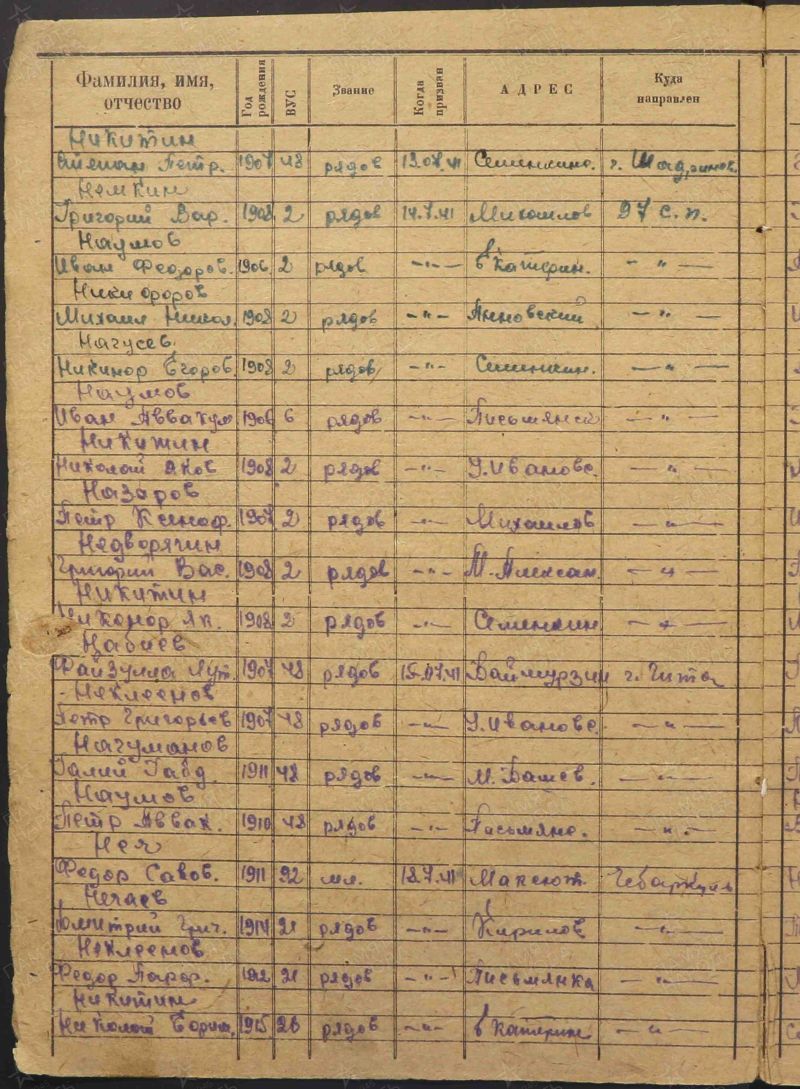 Фамилия, имя, отчество Год рождения ВУС Звание Когда призван АДРЕС Куда направлен
Никитин
Степан Петр. 1907 48 рядов 13.07.41 Семенкино. г. Шадринск.
Немкин
Григорий Вар. 1908 2 рядов 14.7.41 Михайлов 97 с.п.
Наумов
Иван Федоров. 1906 2 рядов —"— Екатерин. —"—
Никифоров
Михаил Никол. 1908 2 рядов —"— Анновский —"—
Нагусев
Никинор Егоров. 1908 2 рядов —"— Семенкин. —"—
Наумов
Иван Аввакум 1906 6 рядов —"— Письмянск —"—
Никитин
Николай Яков 1908 2 рядов —"— У.Ивановс. —"—
Назаров
Петр Ксеноф. 1907 2 рядов —"— Михайлов —"—
Недворягин
Григорий Вас. 1908 2 рядов —"— М.Алексан. —"—
Никитин
Никонор Як. 1908 2 рядов —"— Семенкин —"—
Набиев
Файзулла Лут. 1907 48 рядов 15.07.41 Баймурзин г. Чита
Неклеенов
Петр Григорьев 1907 48 рядов —"— У.Ивановс. —"—
Нагуманов
Галий Габд. 1911 48 рядов —"— М.Башев. —"—
Наумов
Петр Аввак. 1910 48 рядов —"— Письмянс. —"—
Неч
Федор Савов. 1911 92 мл. 18.7.41 Максют. Чебаркуль
Нечаев
Дмитрий Григ. 1914 21 рядов —"— Кирилов —"—
Неклеенов
Федор Парф. 1912 21 рядов —"— Письмянка —"—
Никитин
Николай Борис. 1915 26 рядов —"— Екатерин —"—